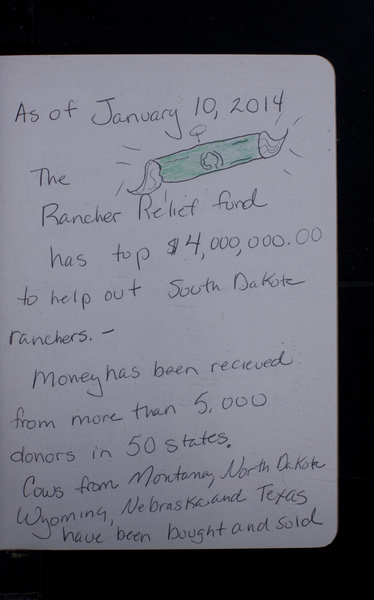 As of January 10, 2014
The
Rancher Relief fund
has top $4,000,000.00
to help out South Dakota
ranchers. -
Money has been recieved
from more than 5,000
donors in 50 states.
Cows from Montana, North Dakota
Wyoming, Nebraska and Texas
have been bought and sold